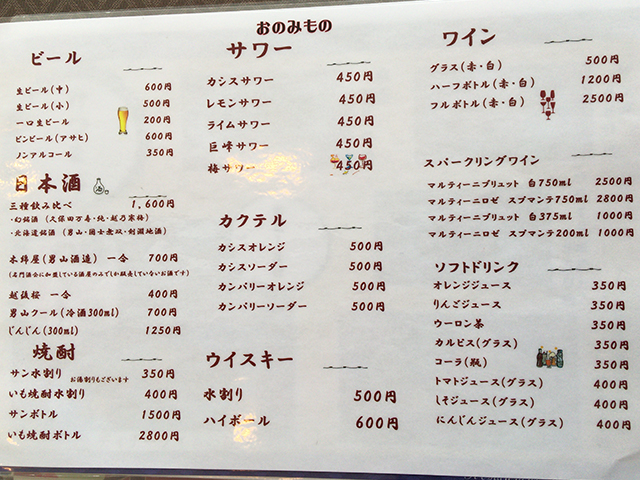 おのみもの
ビール
生ビール(中) 600円
生ビール(小) 500円
一口生ビール 200円
ビンビール(アサヒ) 600円
ノンアルコール 350円
日本酒
三種飲み比べ 1,600円
・幻銘酒 (久保田万寿・純・越乃寒梅)
・北海道銘酒 (男山・国士無双・剣淵地酒)
木綿屋(男山酒造) 一合 700円
(名門酒会に加盟している酒屋のみでしか販売していないお酒です)
越後桜 一合 400円
男山クール(冷酒300ml) 700円
じんじん(300ml) 1250円
焼酎
サン水割り 350円
お湯割りもございます
いも焼酎水割り 400円
サンボトル 1500円
いも焼酎ボトル 2800円
サワー
カシスサワー 450円
レモンサワー 450円
ライムサワー 450円
巨峰サワー 450円
梅サワー 450円
カクテル
カシスオレンジ 500円
カシスソーダー 500円
カンパリーオレンジ 500円
カンパリーソーダー 500円
ウイスキー
水割り 500円
ハイボール 600円
ワイン
グラス(赤・白) 500円
ハーフボトル(赤・白) 1200円
フルボトル(赤・白) 2500円
スパークリングワイン
マルティーニブリュット 白750ml 2500円
マルティーニロゼ スプマンテ750ml 2800円
マルティーニブリュット 白375ml 1000円
マルティーニロゼ スプマンテ200ml 1000円
ソフトドリンク
オレンジジュース 350円
りんごジュース 350円
ウーロン茶 350円
カルピス(グラス) 350円
コーラ(瓶) 350円
トマトジュース(グラス) 400円
しそジュース(グラス) 400円
にんじんジュース(グラス) 400円